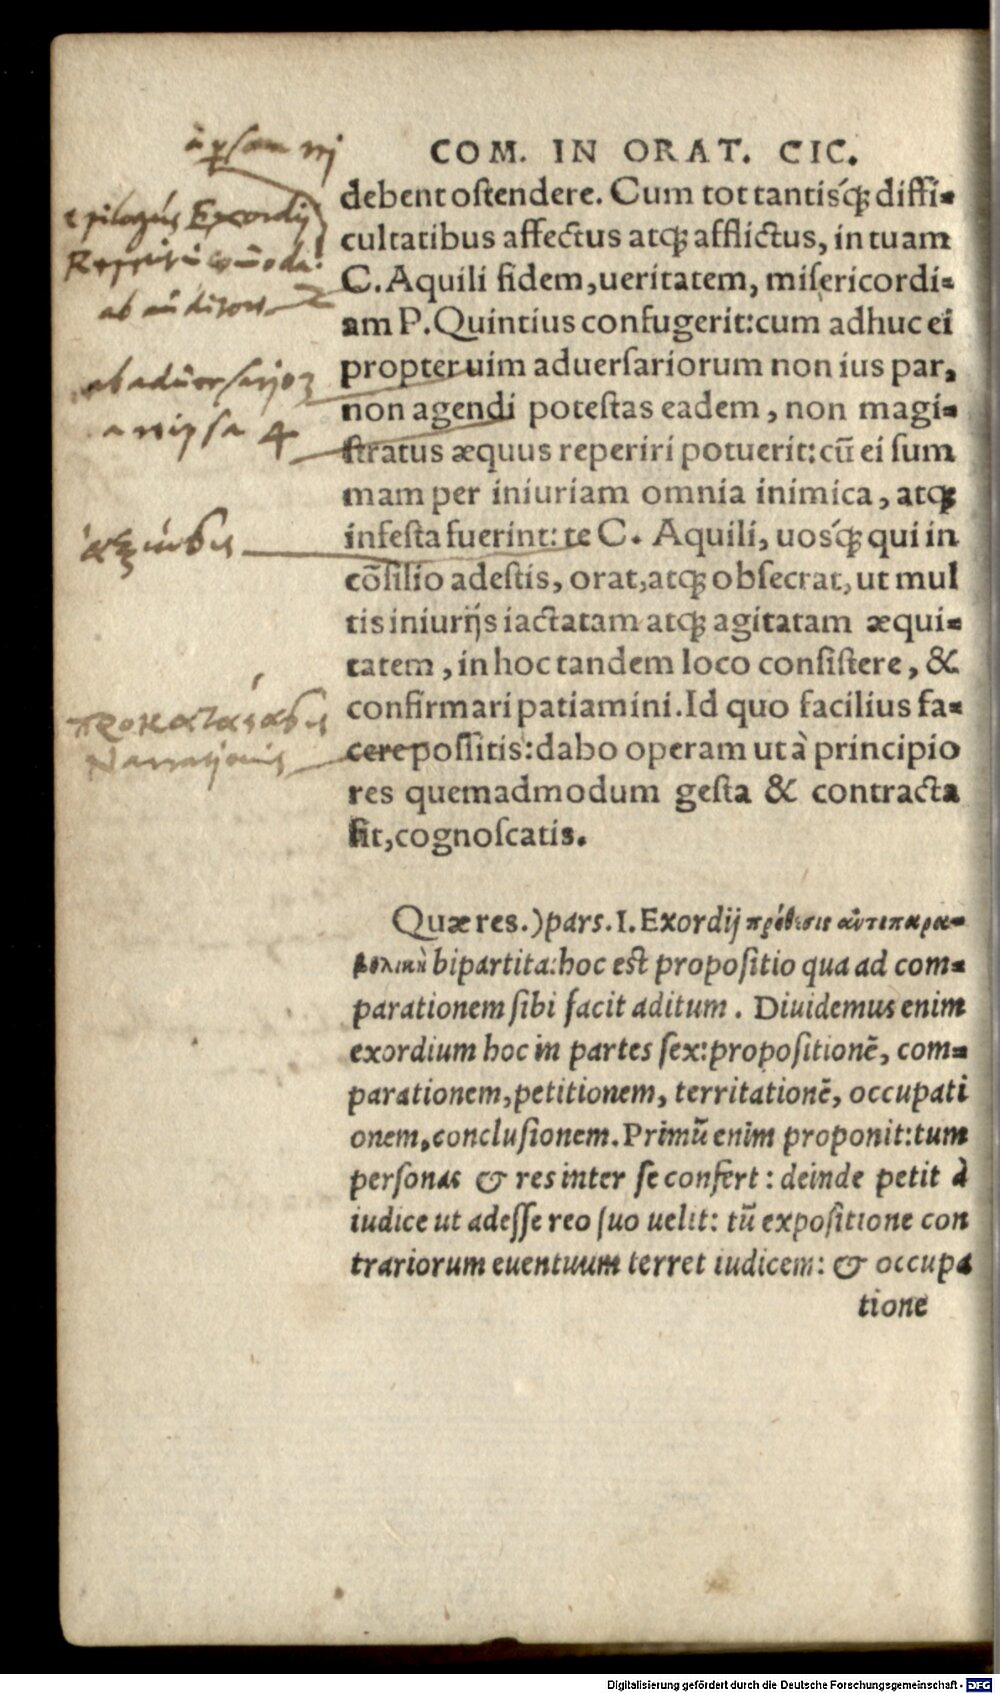 COM. IN ORAT. CIC.
debent ostendere. Cum tot tantisq́ꝫ diffi-
cultatibus affectus atqꝫ afflictus, in tuam
C. Aquili fidem, ueritatem, misericordi-
am P. Quintius confugerit: cum adhuc ei
propter uim aduersariorum non ius par,
non agendi potestas eadem, non magi-
stratus æquus reperiri potuerit: cū ei sum
mam per iniuriam omnia inimica, atqꝫ
infesta fuerint: te C. Aquili, uosq́ꝫ qui in
cōsilio adestis, orat, atqꝫ obsecrat, ut mul
tis iniurijs iactatam atqꝫ agitatam æqui-
tatem, in hoc tandem loco consistere, &
confirmari patiamini. Id quo facilius fa-
cere possitis: dabo operam ut à principio
res quemadmodum gesta & contracta
sit, cognoscatis.
Quæ res.) pars. I. Exordij πρόθεσις ἀντιπαρα-
βολικὴ bipartita: hoc est propositio qua ad com-
parationem sibi facit aditum. Diuidemus enim
exordium hoc in partes sex: propositionē, com-
parationem, petitionem, territationē, occupati
onem, conclusionem. Primū enim proponit: tum
personas & res inter se confert: deinde petit à
iudice ut adesse reo suo uelit: tū expositione con
trariorum euentuum terret iudicem: & occupa
tione
epilogus Exordij
ab auditore
ab aduersarijs
Narrationis
Digitalisierung gefördert durch die Deutsche Forschungsgemeinschaft - DFG